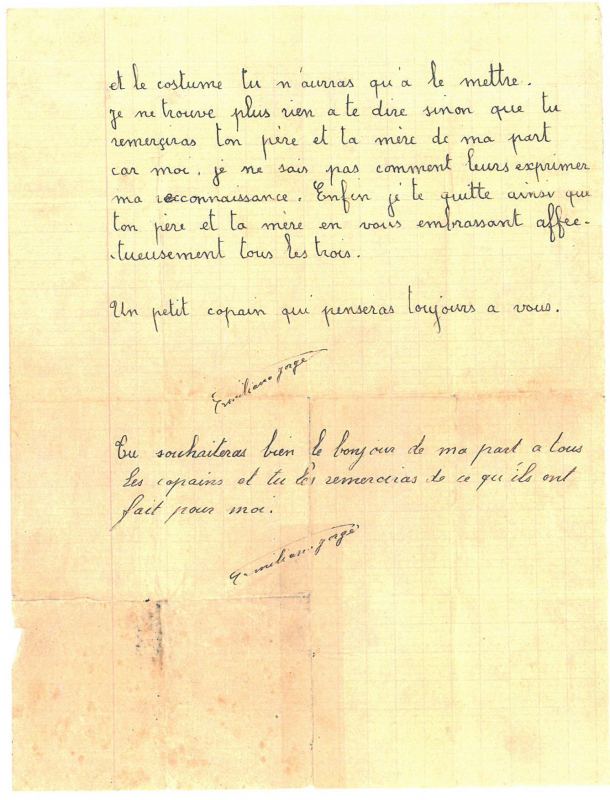 et le costume tu n'aurras qu'a le mettre.
Je ne trouve plus rien a te dire sinon que tu
remerçiras ton père et ta mère de ma part
car moi, je ne sais pas comment leurs exprimer
ma reconnaissance. Enfin je te quitte ainsi que
ton père et ta mère en vous embrassant affec-
-tueusement tous les trois.
Un petit copain qui penseras toujours a vous.
Emiliano Jorge
Tu souhaiteras bien le bonjour de ma part a tous
les copains et tu les remercias de ce qu'ils ont
fait pour moi.
Emiliano Jorge